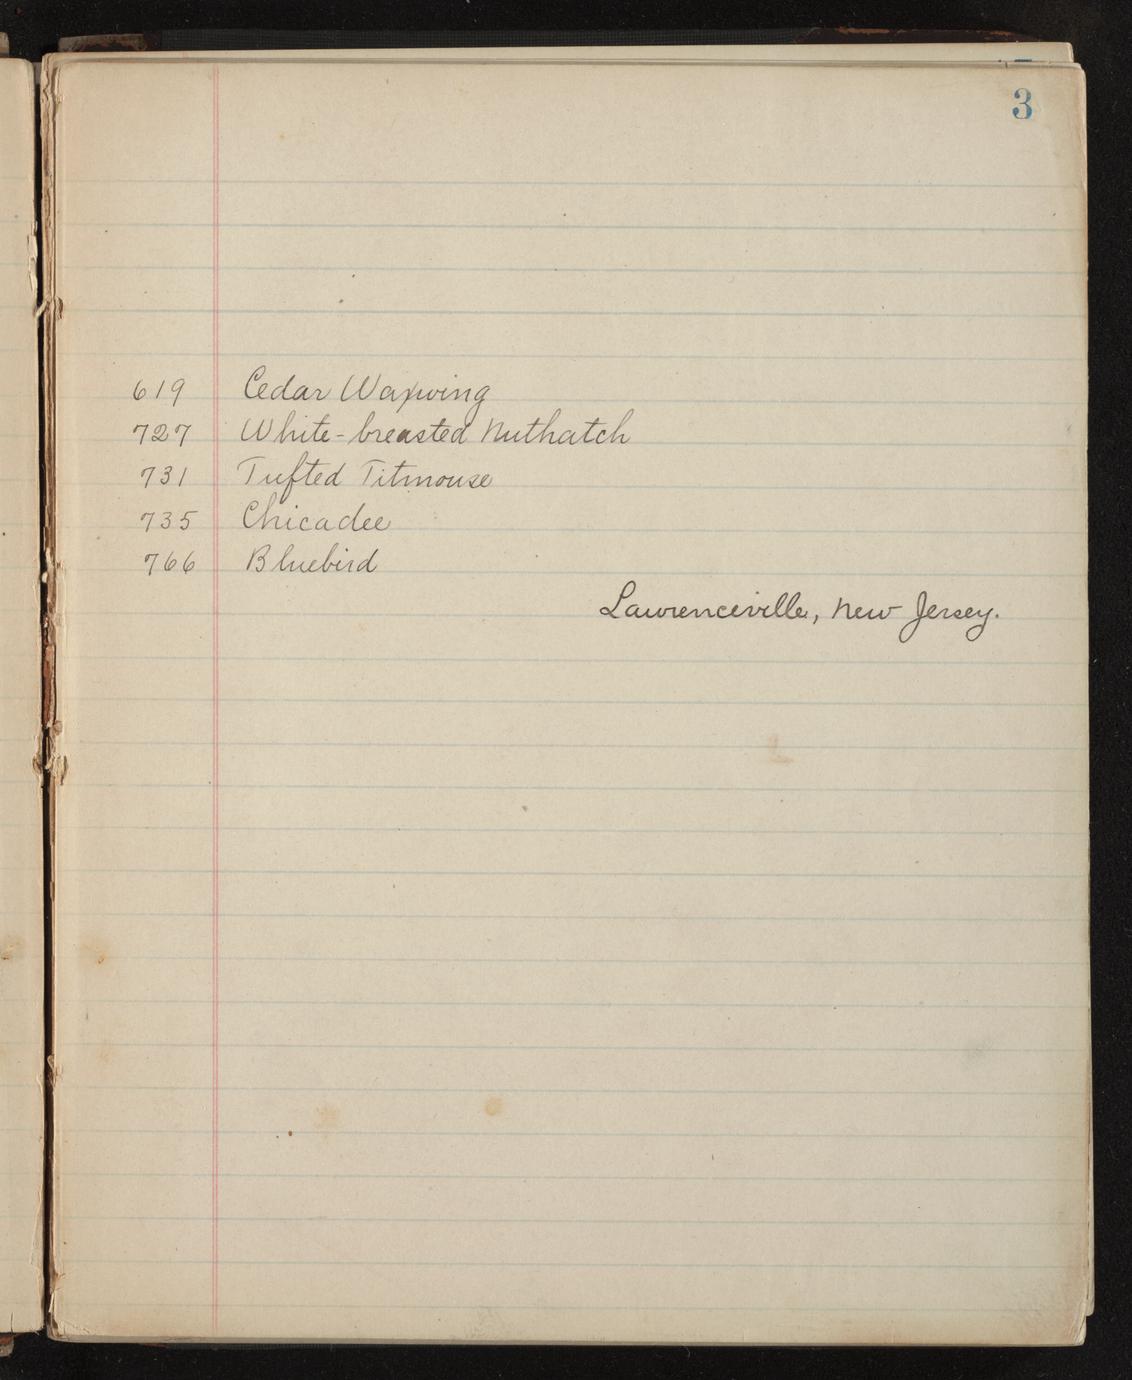 3
619 Cedar Waxwing
727 White-breasted Nuthatch
731 Tufted Titmouse
735 Chicadee
766 Bluebird
Lawrenceville, New Jersey.